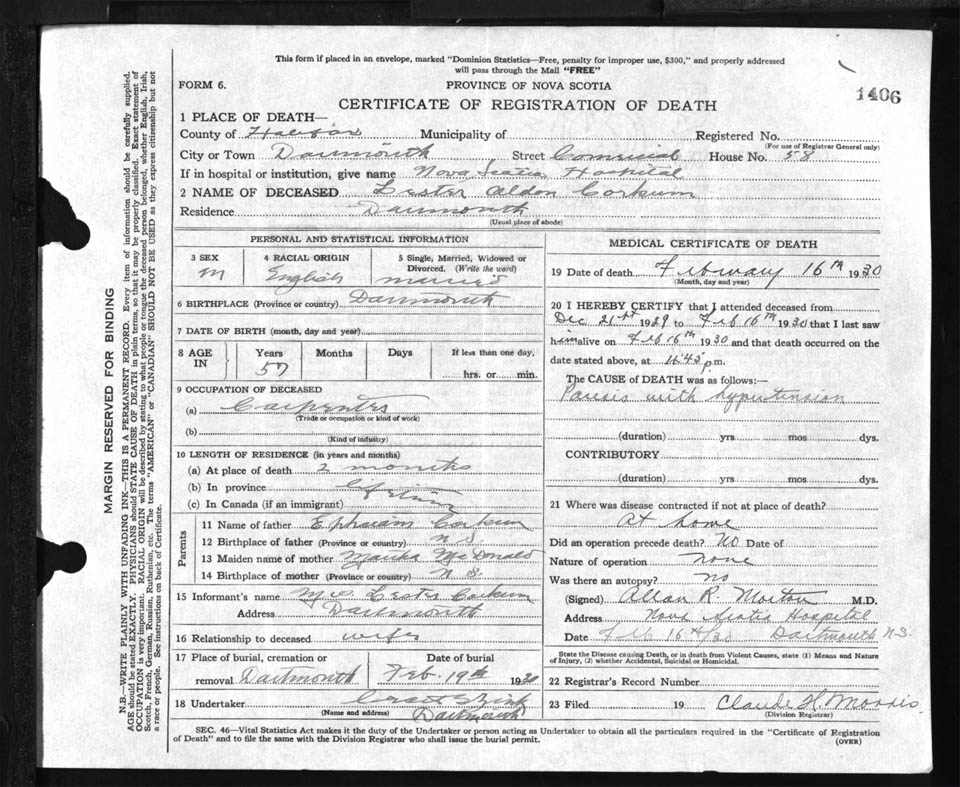 This form if placed in an envelope, marked "Dominion Statistics—Free, penalty for improper use, $300," and properly addressed
will pass through the Mail "FREE"
FORM 6.
PROVINCE OF NOVA SCOTIA
1406
CERTIFICATE OF REGISTRATION OF DEATH
1 PLACE OF DEATH—
County of Halifax Municipality of Registered No.
(For use of Registrar General only)
City or Town Darmouth Street House No. 58
If in hospital or institution, give name Nova Scotia Hospital
2 NAME OF DECEASED Lester Aldon Corkum
Residence Darmouth
(Usual place of abode)
PERSONAL AND STATISTICAL INFORMATION
3 SEX 4 RACIAL ORIGIN 5 Single, Married, Widowed or
Divorced. (Write the word)
m English married
6 BIRTHPLACE (Province or country) Darmouth
7 DATE OF BIRTH (month, day and year)
8 AGE IN Years Months Days If less than one day,
57
hrs. or min.
9 OCCUPATION OF DECEASED
(a)
(Trade or occupation or kind of work)
(b)
(Kind of industry)
10 LENGTH OF RESIDENCE (in years and months)
(a) At place of death 2 months
(b) In province
(c) In Canada (if an immigrant)
Parents
11 Name of father Ephraim Corkum
12 Birthplace of father (Province or country) N.S.
13 Maiden name of mother Martha McDonald
14 Birthplace of mother (Province or country) N.S.
15 Informant's name Mrs Corkum
Address Dartmouth
16 Relationship to deceased wife
17 Place of burial, cremation or Date of burial
removal Dartmouth Feb. 19th 1930
18 Undertaker
(Name and address) Dartmouth
MEDICAL CERTIFICATE OF DEATH
19 Date of death February 16th 1930
(Month, day and year)
20 I HEREBY CERTIFY that I attended deceased from
Dec 21st 1929 to Feb 16th 1930 that I last saw
him alive on Feb 16th 1930 and that death occurred on the
date stated above, at p.m.
The CAUSE of DEATH was as follows:—
Paresis with hypertension
(duration) yrs mos dys.
CONTRIBUTORY
(duration) yrs mos dys.
21 Where was disease contracted if not at place of death?
At home
Did an operation precede death? No Date of
Nature of operation none
Was there an autopsy? no
(Signed) Allan R. Morton M.D.
Address Nova Scotia Hospital
Date Feb 16th/30 Dartmouth N.S.
State the Disease causing Death, or in death from Violent Causes, state (1) Means and Nature
of Injury, (2) whether Accidental, Suicidal or Homicidal.
22 Registrar's Record Number
23 Filed 19 Claude H. Morris
(Division Registrar)
SEC. 46—Vital Statistics Act makes it the duty of the Undertaker or person acting as Undertaker to obtain all the particulars required in the "Certificate of Registration
of Death" and to file the same with the Division Registrar who shall issue the burial permit.
(OVER)
MARGIN RESERVED FOR BINDING
N.B.—WRITE PLAINLY WITH UNFADING INK—THIS IS A PERMANENT RECORD. Every item of information should be carefully supplied.
AGE should be stated EXACTLY. PHYSICIANS should STATE CAUSE OF DEATH in plain terms, so that it may be properly classified. Exact statement of
OCCUPATION is very important. RACIAL ORIGIN will be described by stating to what people or tongue the deceased person belonged, whether English, Irish,
Scotch, French, German, Russian, Ruthenian, etc. The terms "AMERICAN" or "CANADIAN" SHOULD NOT BE USED as they express citizenship but not
a race or people. See instructions on back of Certificate.